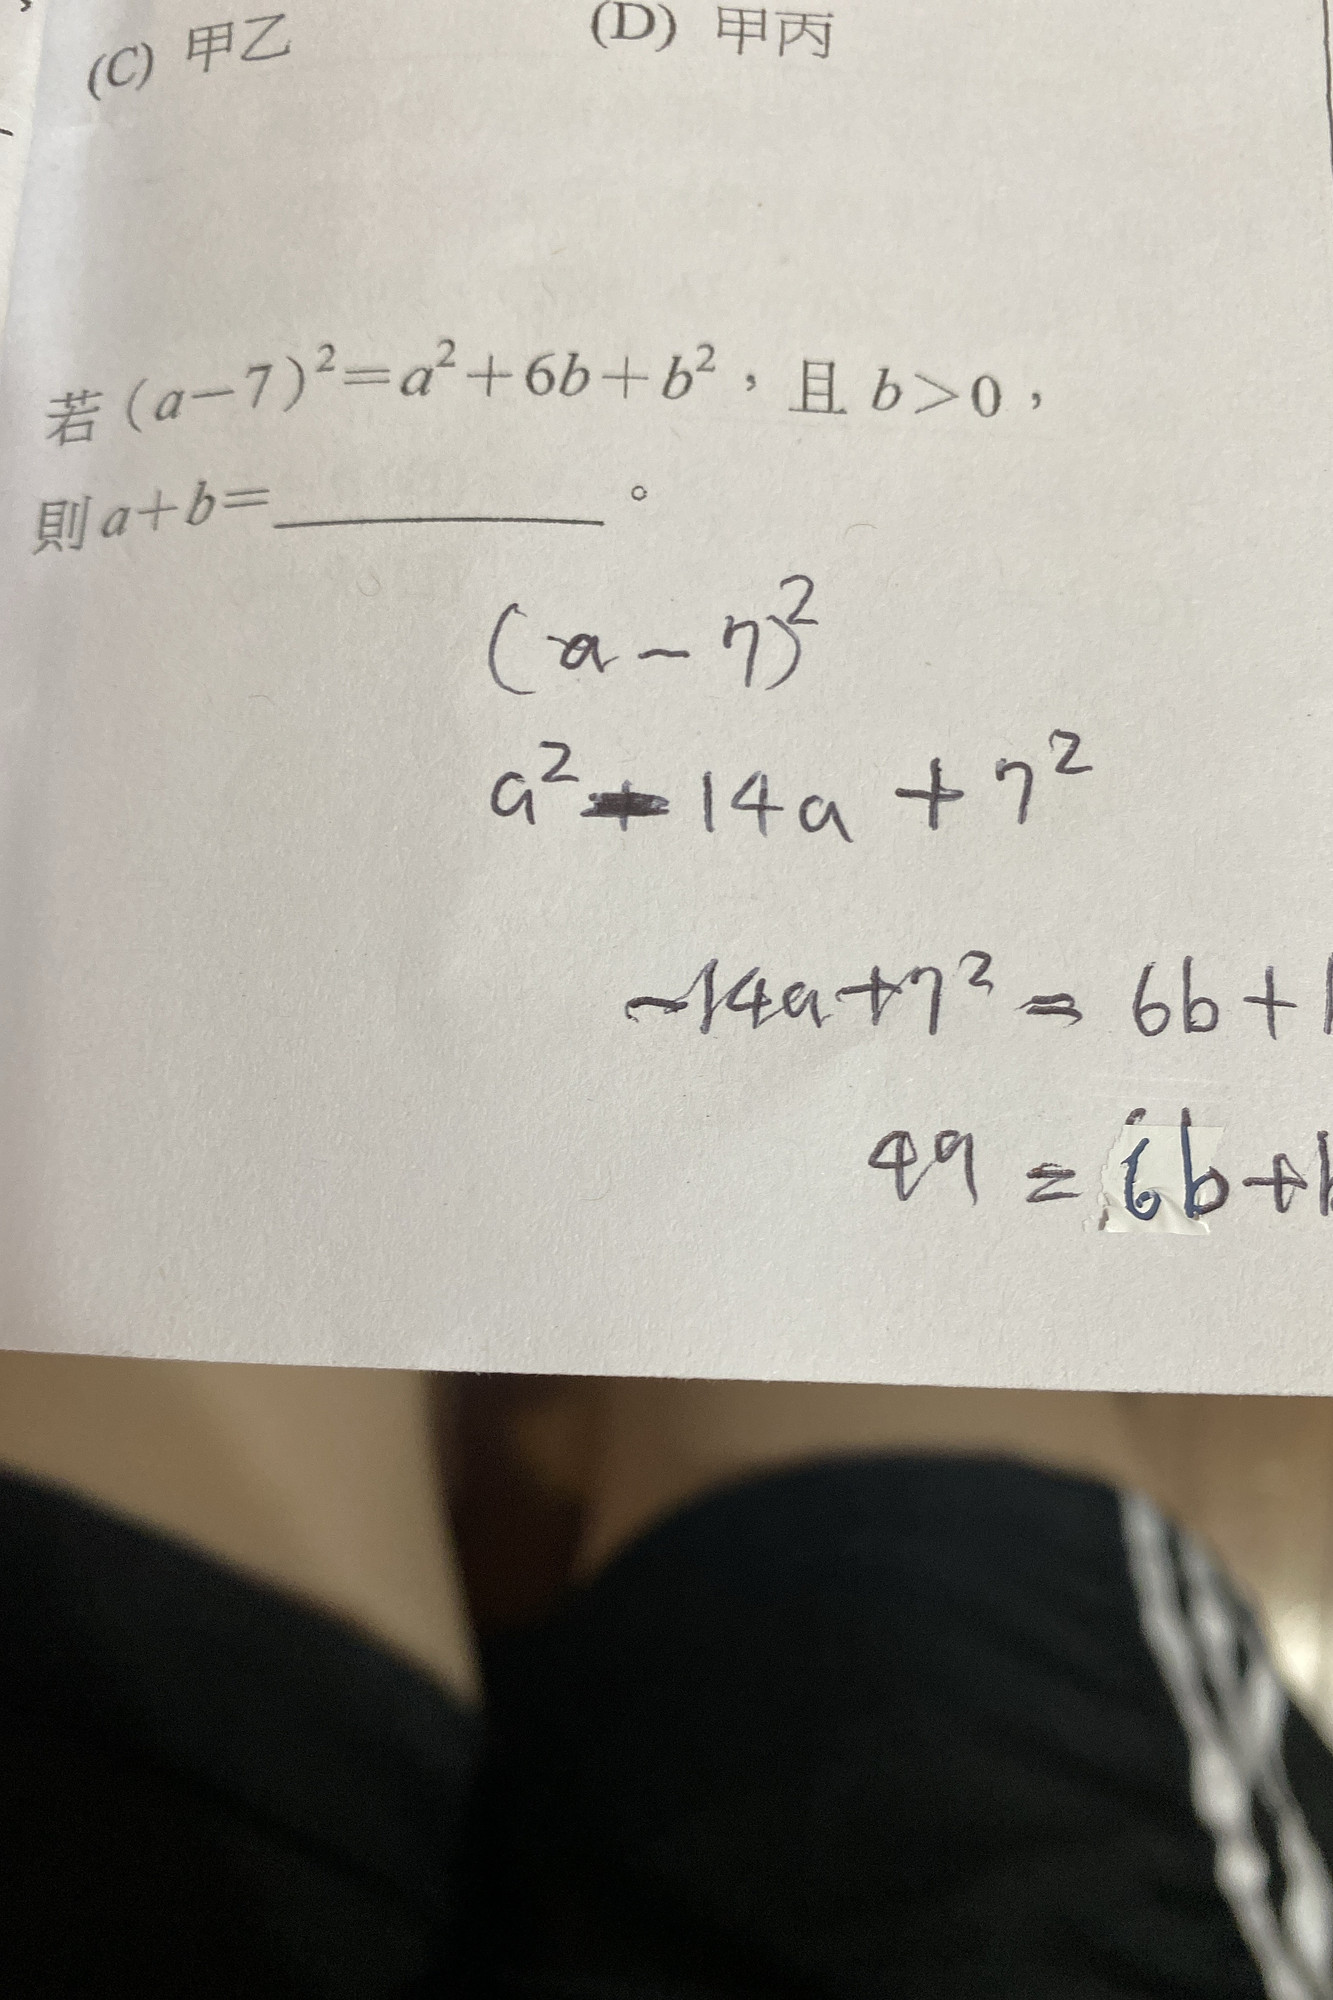 (C) 甲乙 (D) 甲丙
若(a−7)²=a²+6b+b²，且 b>0，
則a+b=__________。
(a−7)²
a²−14a+7²
−14a+7²=6b+
49=6b+